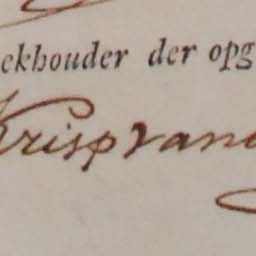 ekhouder der opg
Krispvan